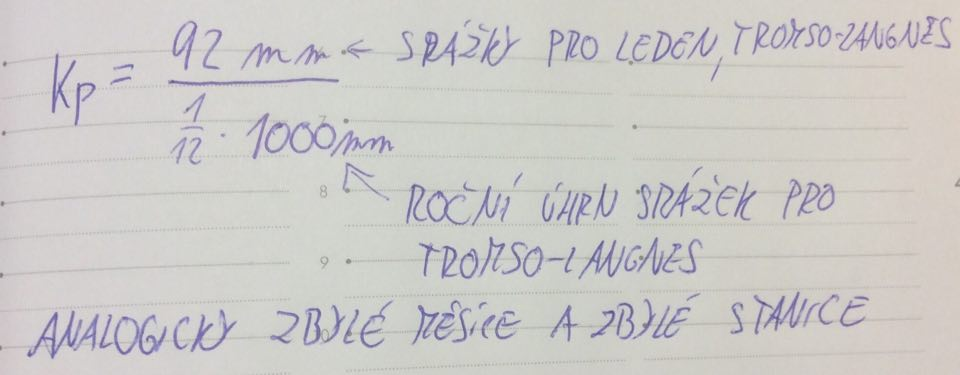 Kp = 92 mm ← SRÁŽKY PRO LEDEN, TROMSO-LANGNES
1/12 · 1000mm
8
ROČNÍ ÚHRN SRÁŽEK PRO
9
TROMSO-LANGNES
ANALOGICKY ZBYLÉ MĚSÍCE A ZBYLÉ STANICE